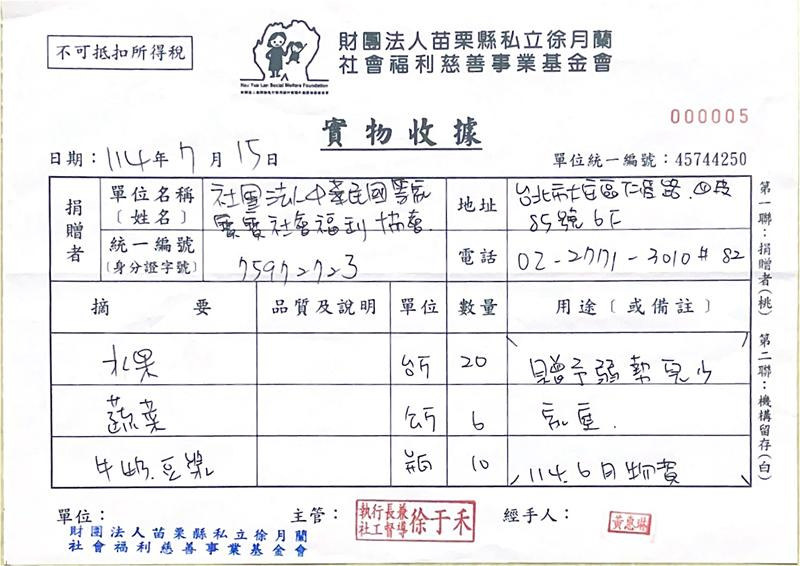 不可抵扣所得稅
Hsu Yue Lan Social Welfare Foundation
財團法人苗栗縣私立徐月蘭
社會福利慈善事業基金會
000005
實物收據
日期：114年7月15日
單位統一編號：45744250
捐贈者
單位名稱
〔姓名〕
社團法人中華民國
社會福利協會
地址
台北市大安區仁愛路四段
85號6F
統一編號
(身分證字號)
75972723
電話
02-2771-3010#82
摘要
品質及說明
單位
數量
用途〔或備註〕
水果
台斤
20
贈予弱勢兒少
家庭.
蔬菜
公斤
6
牛奶.豆漿
瓶
10
114.6月物資
第一聯：捐贈者(桃)
第二聯：機構留存(白)
單位：
財團法人苗栗縣私立徐月蘭
社會福利慈善事業基金會
主管：
執行長兼
社工督導
徐于禾
經手人：
黃惠琳